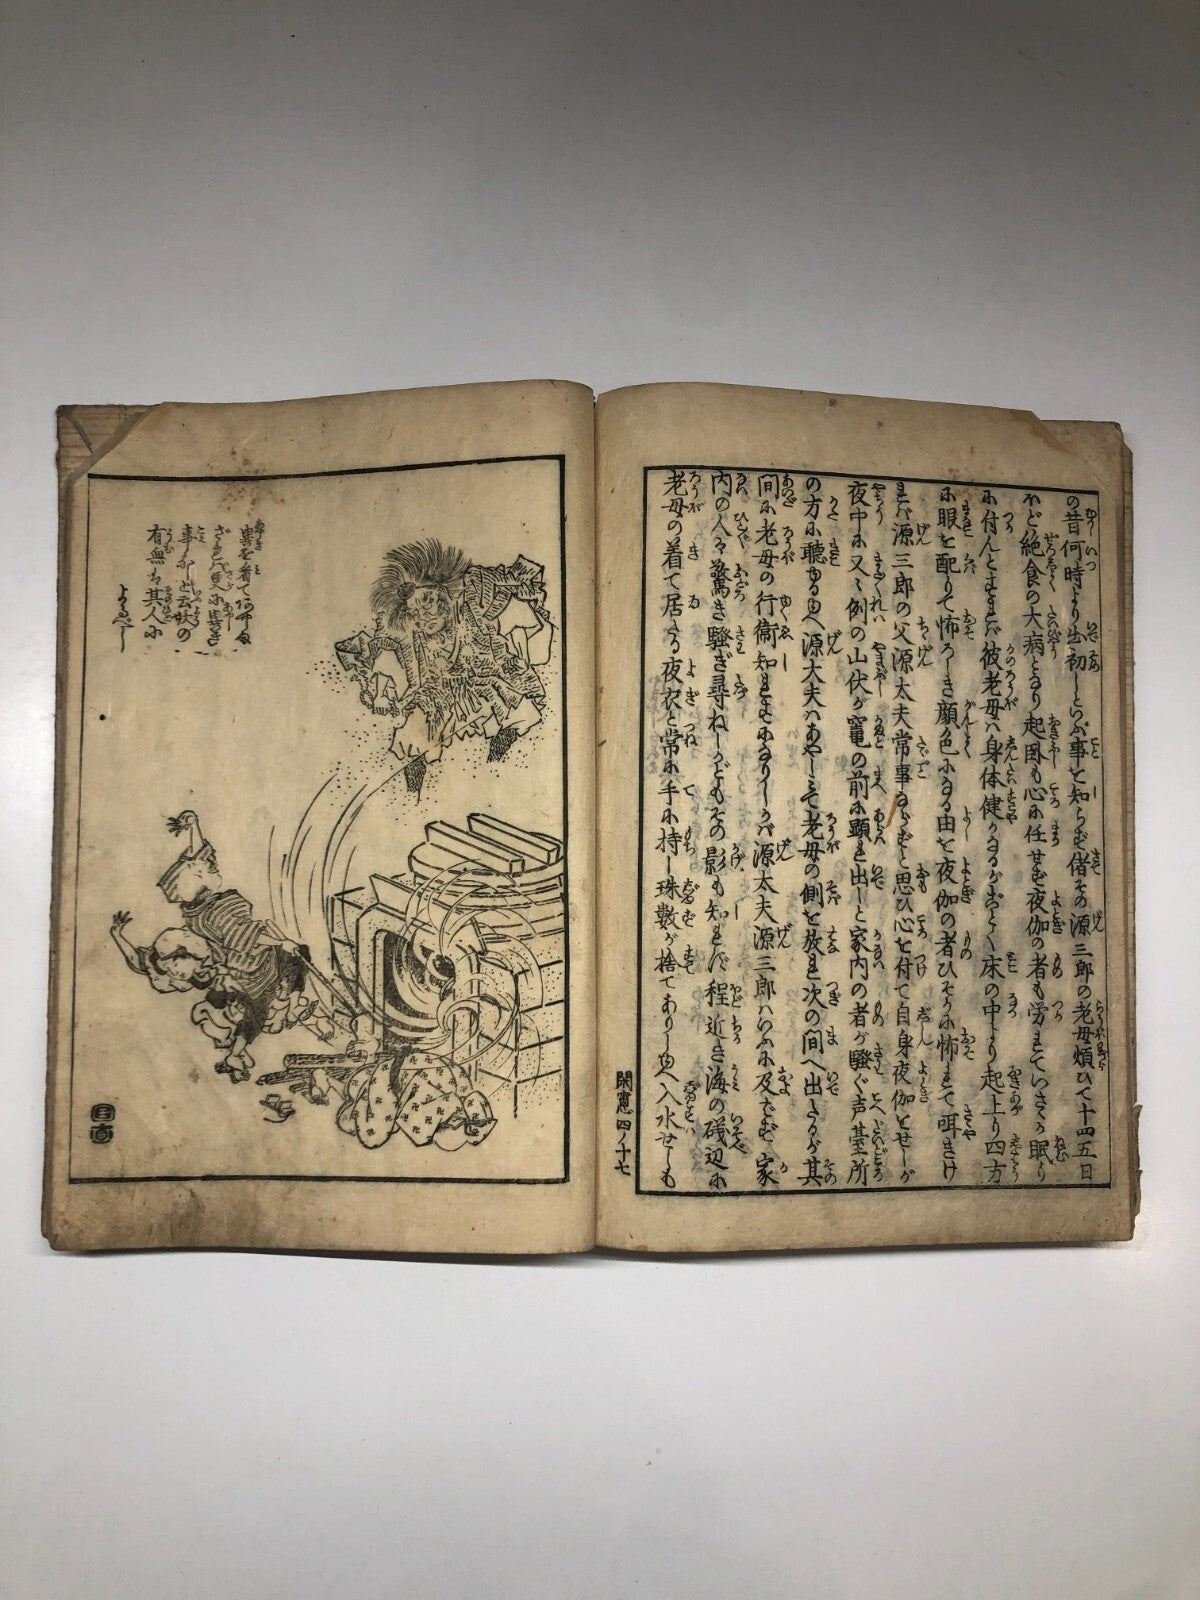 の昔何時より出初しといふ事を知らず偖その源三郎の老母煩ひて十四五日
ほど絶食の大病となり起臥も心に任せず夜伽の者も労れていさゝか眠り
に付んとすれバ彼老母ハ身体健かなるがごとく床の中より起上り四方
に眼を配りて怖ろしき顔色になる由を夜伽の者ひそかに怖れて咡きけ
れバ源三郎の父源太夫常事ならずと思ひ心を付て自身夜伽をせしが
夜中に又〻例の山伏が竃の前に顕れ出しと家内の者が騒ぐ声台所
の方に聴ゆるゆへ源大夫ハあやしみて老母の側を放れ次の間へ出たるが其
間に老母の行衛知れずになりしかバ源太夫源三郎ハいふに及ばず家
内の人々驚き騒ぎ尋ねしかどもその影も知れず程近き海の磯辺に
老母の着て居たる夜衣と常に手に持し珠数が捨てありしゆへ入水せしも
閑窓四ノ十七
ざれバ更に
事なしと云
有無は其人に
よるべし